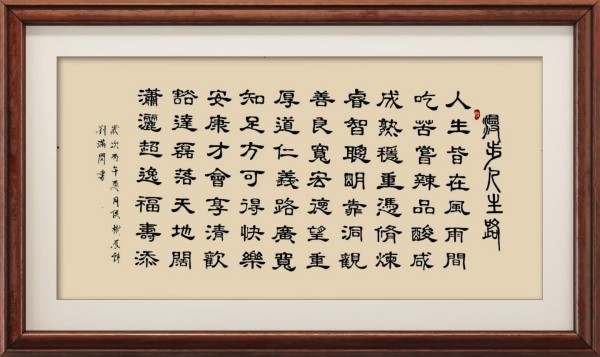 漫步人生路
人生皆在風雨間
吃苦嘗辣品酸咸
成熟穩重憑脩煉
睿智聰明靠洞觀
善良寬宏德望重
厚道仁義路廣寬
知足方可得快樂
安康才會享清歡
豁達磊落天地闊
瀟灑超逸福壽添
歲次丙午月樹詩
劉滿書